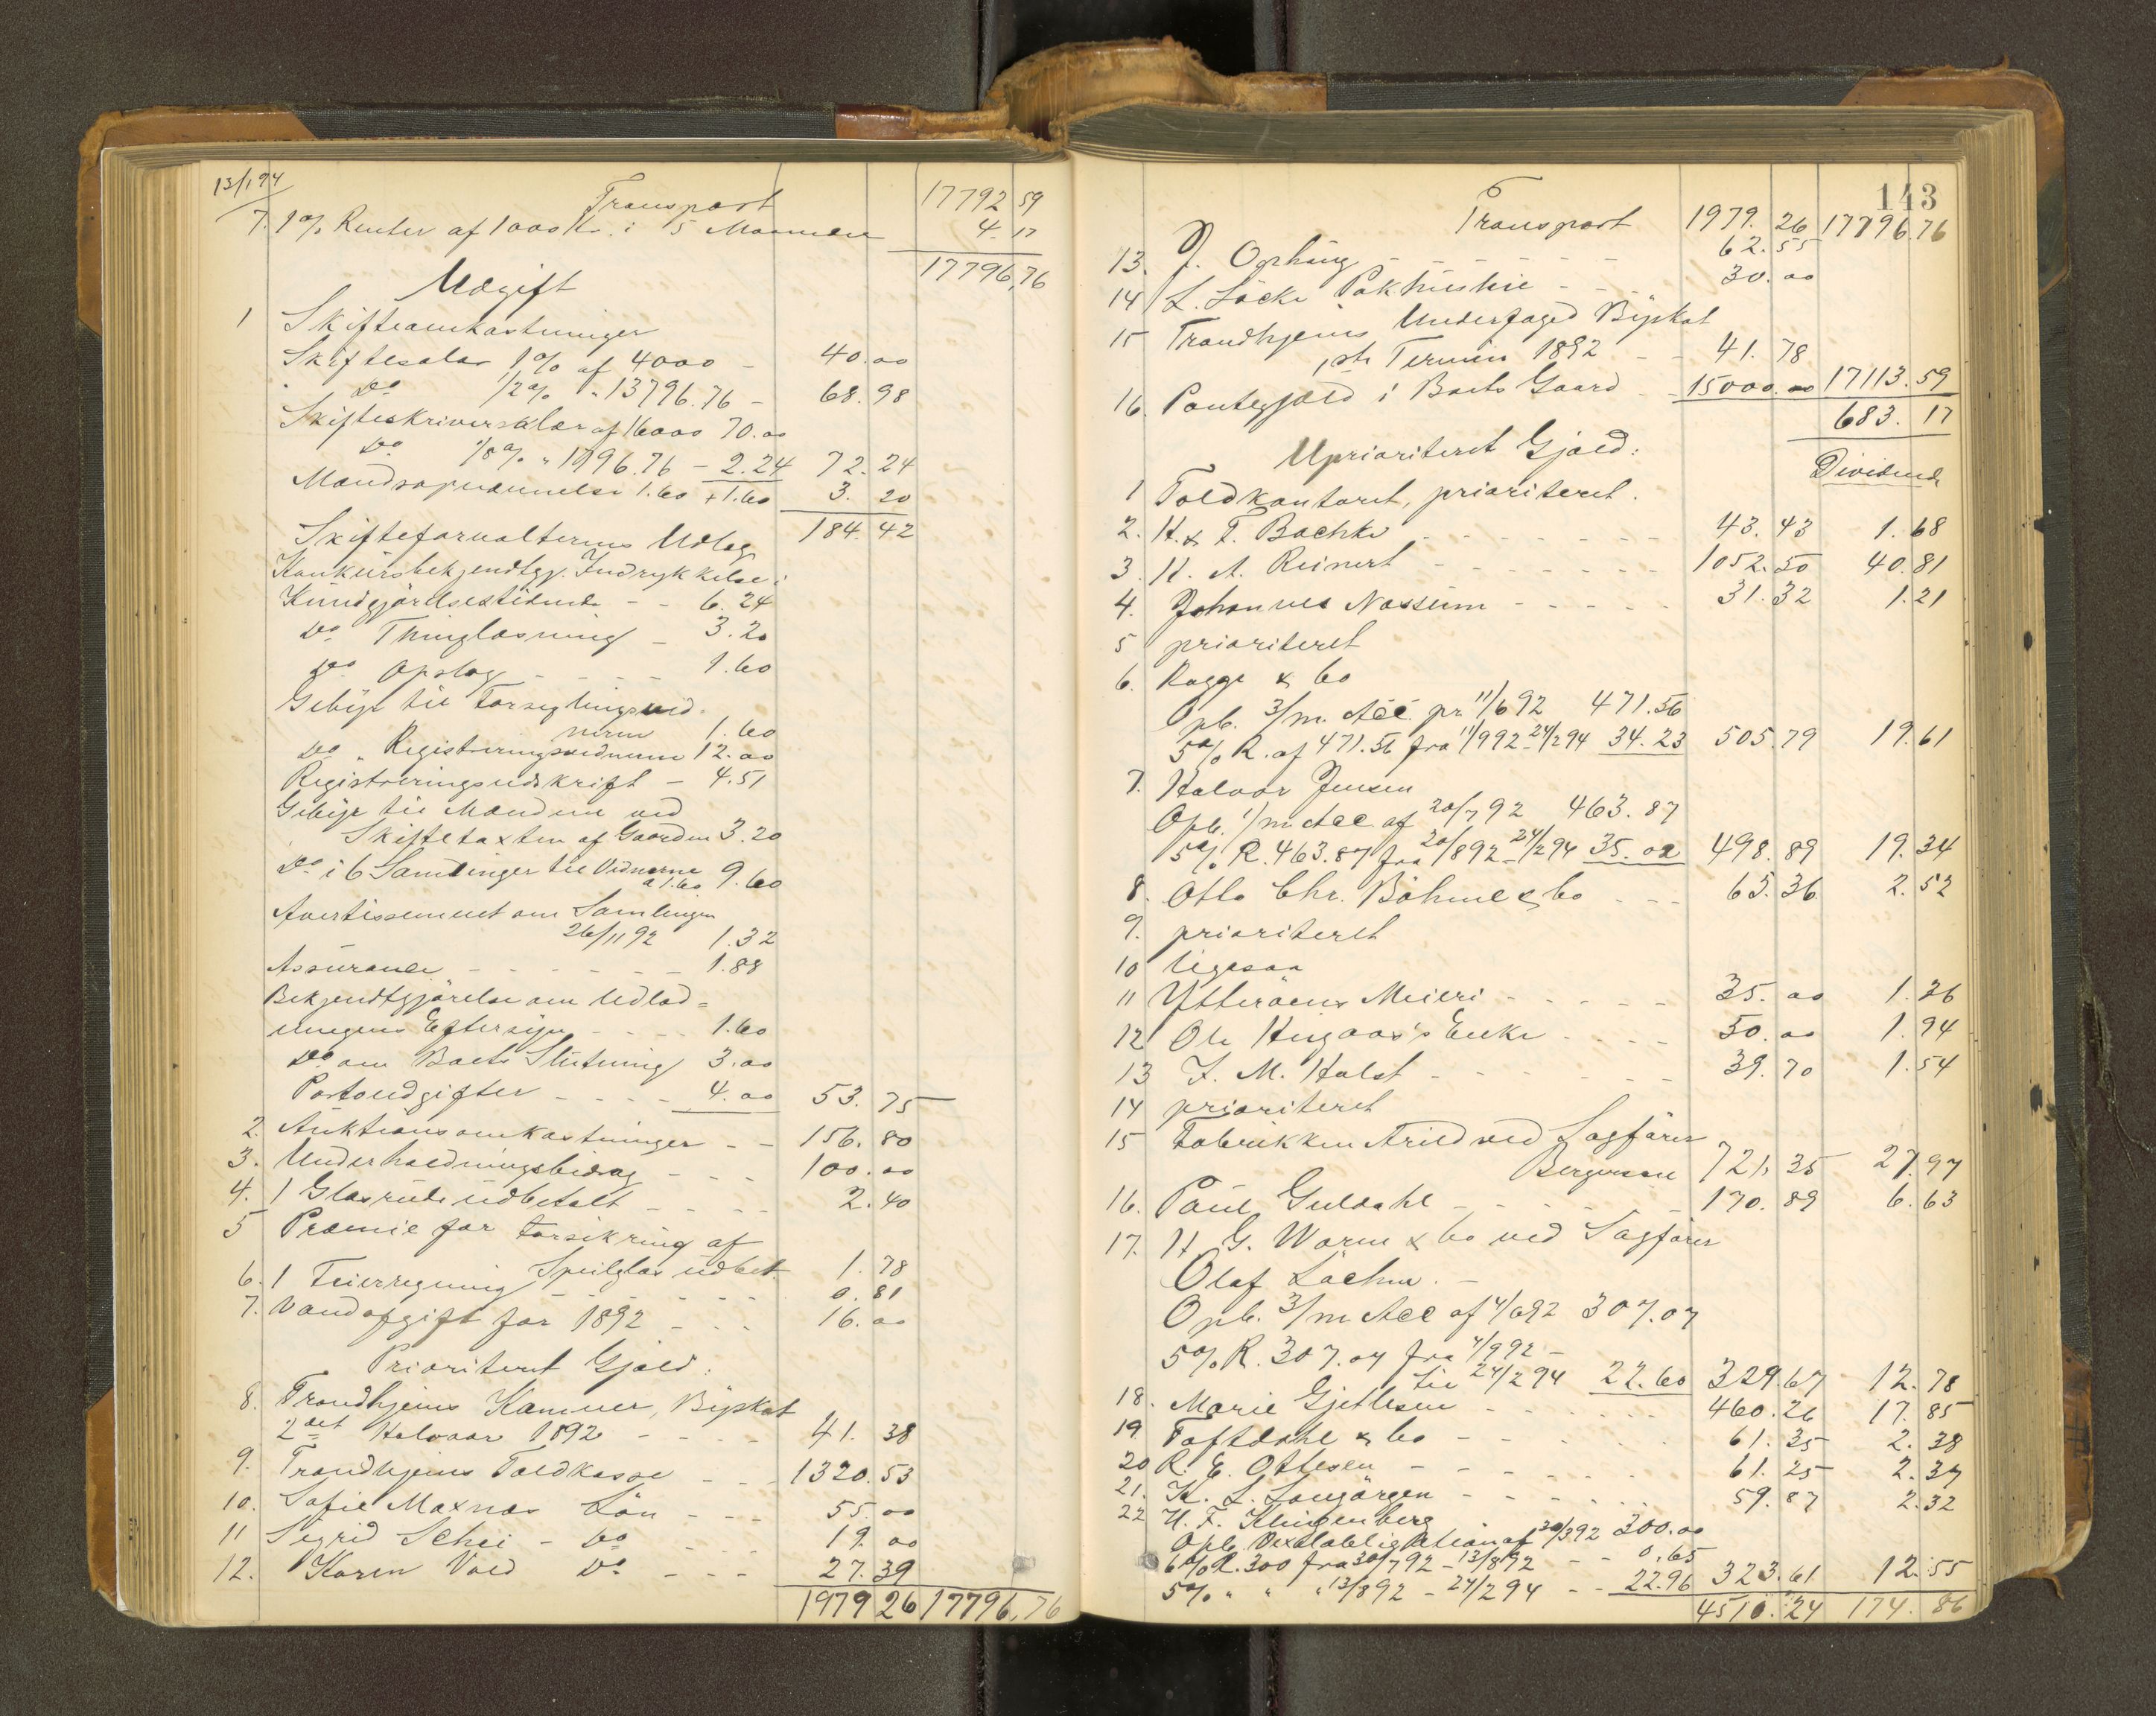 13/1 94
Transport 17792 59
7. 1% Renter af 1000 Kr. i 5 Maaneder 4. 17
17796,76
Udgift
1 Skifteomkostninger
Skiftesalar 1% af 4000 - 40.00
Do 1/2% " 13796.76 - 68.98
Skifteskriversalar af 16000 70.00
Do 1/8% " 1796.76 - 2.24 72.24
Mandsopnævnelse 1.60 + 1.60 3. 20
184.42
Skifteforvalterens Udlæg
Konkursbekjendtgj. Indrykkelse i
Kundgjörelsestidende - - 6.24
Do Thinglæsning - 3.20
Do Opslag - - - - 1.60
Gebyr til Forseglingsvid-
nerne 1.60
Do " Registreringsvidnerne 12.00
Registreringsudskrift - 4.51
Gebyr til Mændene ved
Skiftetaxten af Gaarden 3.20
Do i 6 Samlinger til Vidnerne
a 1.60 9.60
Avertissement om Samlingen
26/11 92 1.32
Assurance - - - - - - 1.88
Bekjendtgjörelse om Udlod=
ningens Eftersyn - - - - 1.60
Do om Boets Slutning 3.00
Portoudgifter - - - - 4.00 53.75
2. Auktionsomkostninger - - 156.80
3. Underholdningsbidrag - - - 100.00
4. 1 Glasrude udbetalt - - - - 2.40
5 Præmie for Forsikring af
Speilglas udbet. 1.78
6. 1 Feierregning - - - - - - 0.81
7. Vandafgift for 1892 - - - 16.00
Prioriteret Gjæld:
8. Trondhjems Kæmner, Byskat
2det Halvaar 1892 - - - - 41. 38
9. Trondhjems Toldkasse - - - 1320.53
10. Sofie Maxnæs Lön - - - 55.00
11 Sigrid Schei - Do - - - 19.00
12. Karen Vold Do - - - 27.39
1979 26 17796,76
143
Transport 1979. 26 17796.76
13. J. Ophüg - - - - - - 62.55
14 L. Löcke Pakhusleie - - - 30.00
15 Trondhjems Underfoged Byskat
1ste Termin 1892 - - 41. 78
16. Pantegjæld i Boets Gaard - 15000.00 17113.59
683. 17
Uprioriteret Gjæld:
Dividende
1 Toldkontoret, prioriteret.
2. H. & F. Bachke - - - - - - - 43. 43 1. 68
3. H. A. Reinert - - - - - - - 1052.50 40.81
4. Johannes Næssüm - - - - - 31.32 1.21
5 prioriteret
6. Rogge & Co
Opb. 3/m. Acc. pr 11/6 92 471.56
5% R. af 471.56 fra 11/9 92 - 24/2 94 34.23 505.79 19.61
7. Halvor Jensen
Opb. 1/m Acc af 20/7 92 463.87
5% R. 463.87 fra 20/8 92 - 24/2 94 35.02 498.89 19.34
8. Otto Chr. Böhme & Co - - - 65.36 2.52
9. prioriteret
10 ligesaa
11 Ytteröens Meieri - - - - - 35.00 1.36
12 Ole Haugaas's Enke - - - - 50.00 1.94
13 F. M. Holst - - - - - - - 39.70 1.54
14 prioriteret
15 Fabrikken Arild ved Sagförer
Bergersen 721.35 27.97
16. Paul Guldahl - - - - - - 170.89 6.63
17. H G. Worm & Co ved Sagförer
Olaf Löchen. -
Opb. 3/m Acc af 4/6 92 307.07
5% R. 307.07 fra 4/9 92 -
til 24/2 94 22.60 329.67 12.78
18. Marie Gjetlesen - - - - - - 460.26 17.85
19 Toftdahl & Co - - - - - - 61.35 2.38
20 R. E. Ottesen - - - - - - 61.25 2.37
21. K. L. Langörgen - - - - - 59.87 2.32
22 H. F. Klingenberg
Opb. Vexelobligation af 30/3 92 300.00
6% R. 300 fra 30/7 92 - 13/8 92 - - 0.65
5% " " " 13/8 92 - 24/2 94 - - 22.96 323.61 12.55
4510.24 174.86